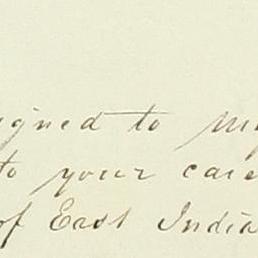 igned to my
to your care
of East India